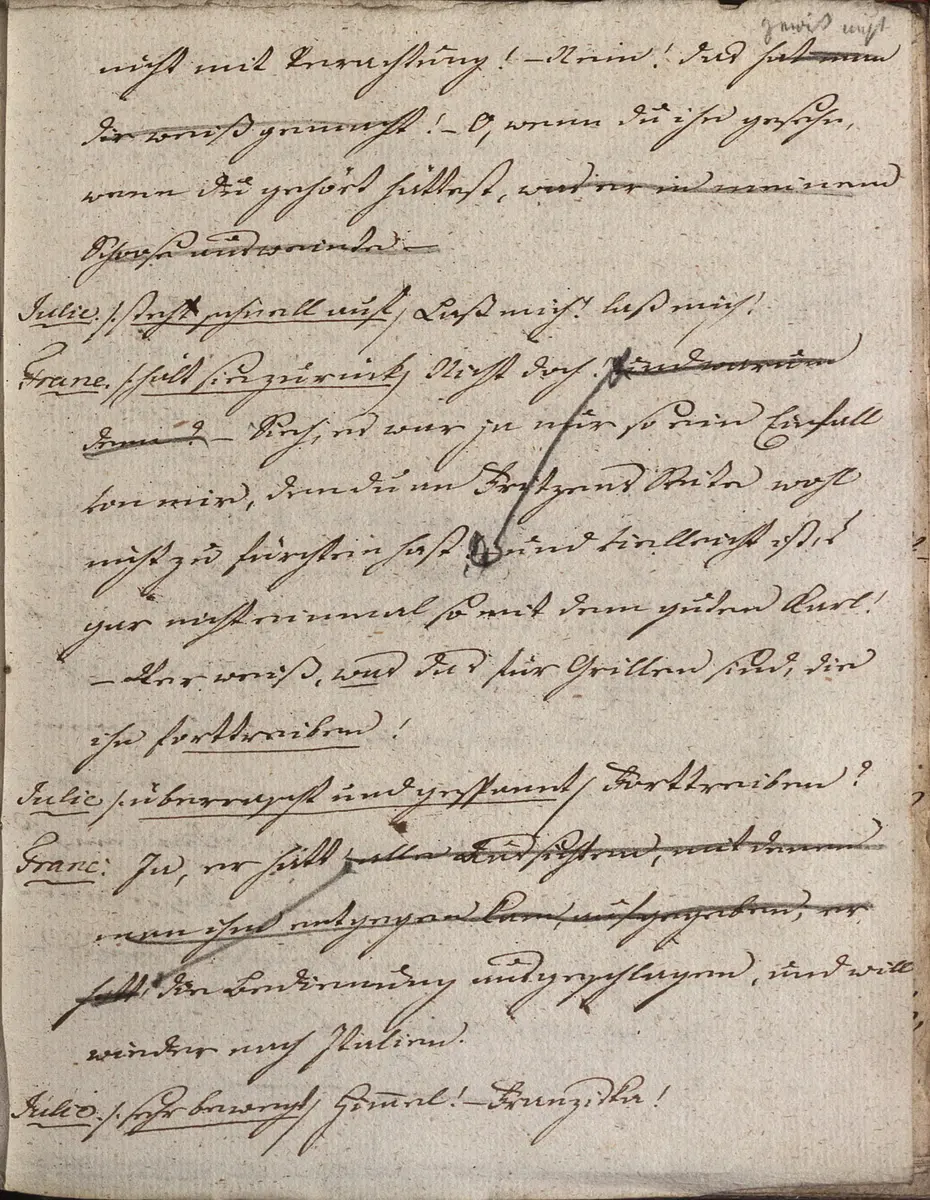 gewiß nicht
nicht mit Verachtung! – Nein! das hat man
dir weiß gemacht! – O, wenn du ihn gesehn,
wenn du gehört hättest, was er in meinem
Schoose ausweinte –
Julie. /: steht schnell auf:/ Laß mich! laß mich!
Franc. /: hält sie zurück:/ Nicht doch! Und warum
denn? – Sieh, es war ja nur so ein Einfall
von mir, den du an Fritzens Seite wohl
nicht zu fürchten hast, und vielleicht ist's
gar nicht einmal so mit dem guten Karl!
– Wer weiß, was das für Grillen sind, die
ihn forttreiben!
Julie /: überrascht und gespannt:/ Forttreiben?
Franc: Ja, er hätt alle Aussichten, mit denen
man ihm entgegen kam, aufgegeben, er
hatt die Bedienung ausgeschlagen, und will
wieder nach Italien.
Julie. /: sehr bewegt:/ Himmel! – Franziska!